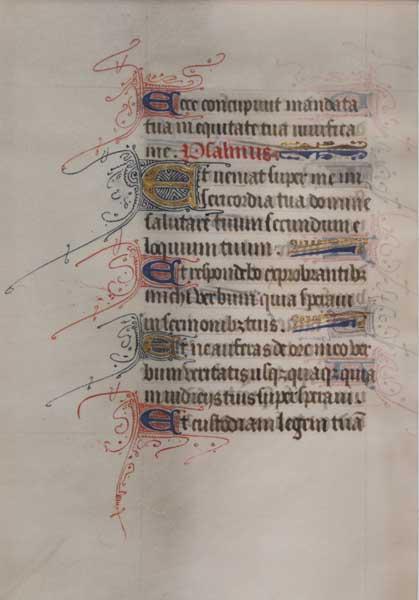 Ecce concupiuit mandata
tua in equitate tua uiuifica
me. Psalmus
Et ueniat super me mi
sericordia tua domine
salutare tuum secundum e
loquium tuum.
Et respondebo exprobrantibꝫ
michi verbum quia speraui
in sermonibꝫ tuis
Et ne auferas de ore meo ver
bum veritatis usqꝫquaqꝫ quia
in iudicijs tuis supersperaui.
Et custodiam legem tuā